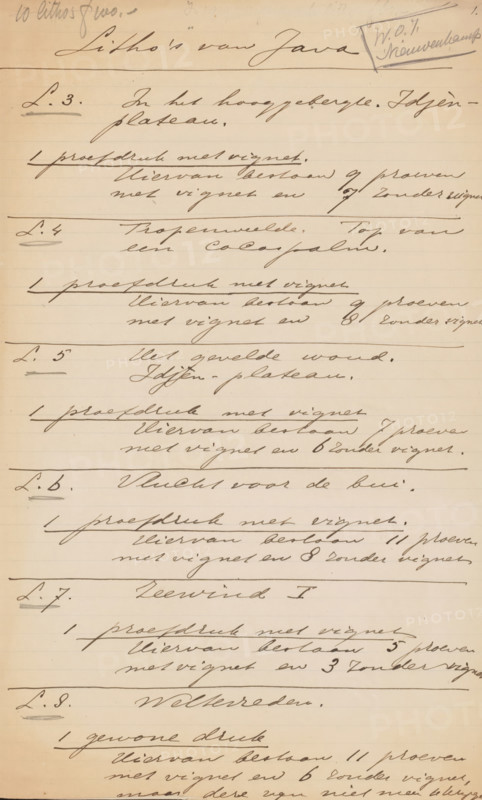 10 litho's f 200.-
1.
Litho's van Java
W.O.J.
Nieuwenkamp
L.3. In het hooggebergte. Idjèn-
plateau.
1 proefdruk met vignet.
Hiervan bestaan 9 proeven
met vignet en 7 zonder vignet
L.4 Tropenweelde. Top van
een Cocospalm.
1 proefdruk met vignet
Hiervan bestaan 9 proeven
met vignet en 8 zonder vignet
L. 5 Het gevelde woud.
Idjèn-plateau.
1 proefdruk met vignet
Hiervan bestaan 7 proeven
met vignet en 6 zonder vignet.
L.6. Vlucht voor de bui.
1 proefdruk met vignet.
Hiervan bestaan 11 proeven
met vignet en 8 zonder vignet
L.7. Zeewind I
1 proefdruk met vignet
Hiervan bestaan 5 proeven
met vignet en 3 zonder vignet
L.8. Weltevreden.
1 gewone druk
Hiervan bestaan 11 proeven
met vignet en 6 zonder vignet,
maar deze zijn niet meer